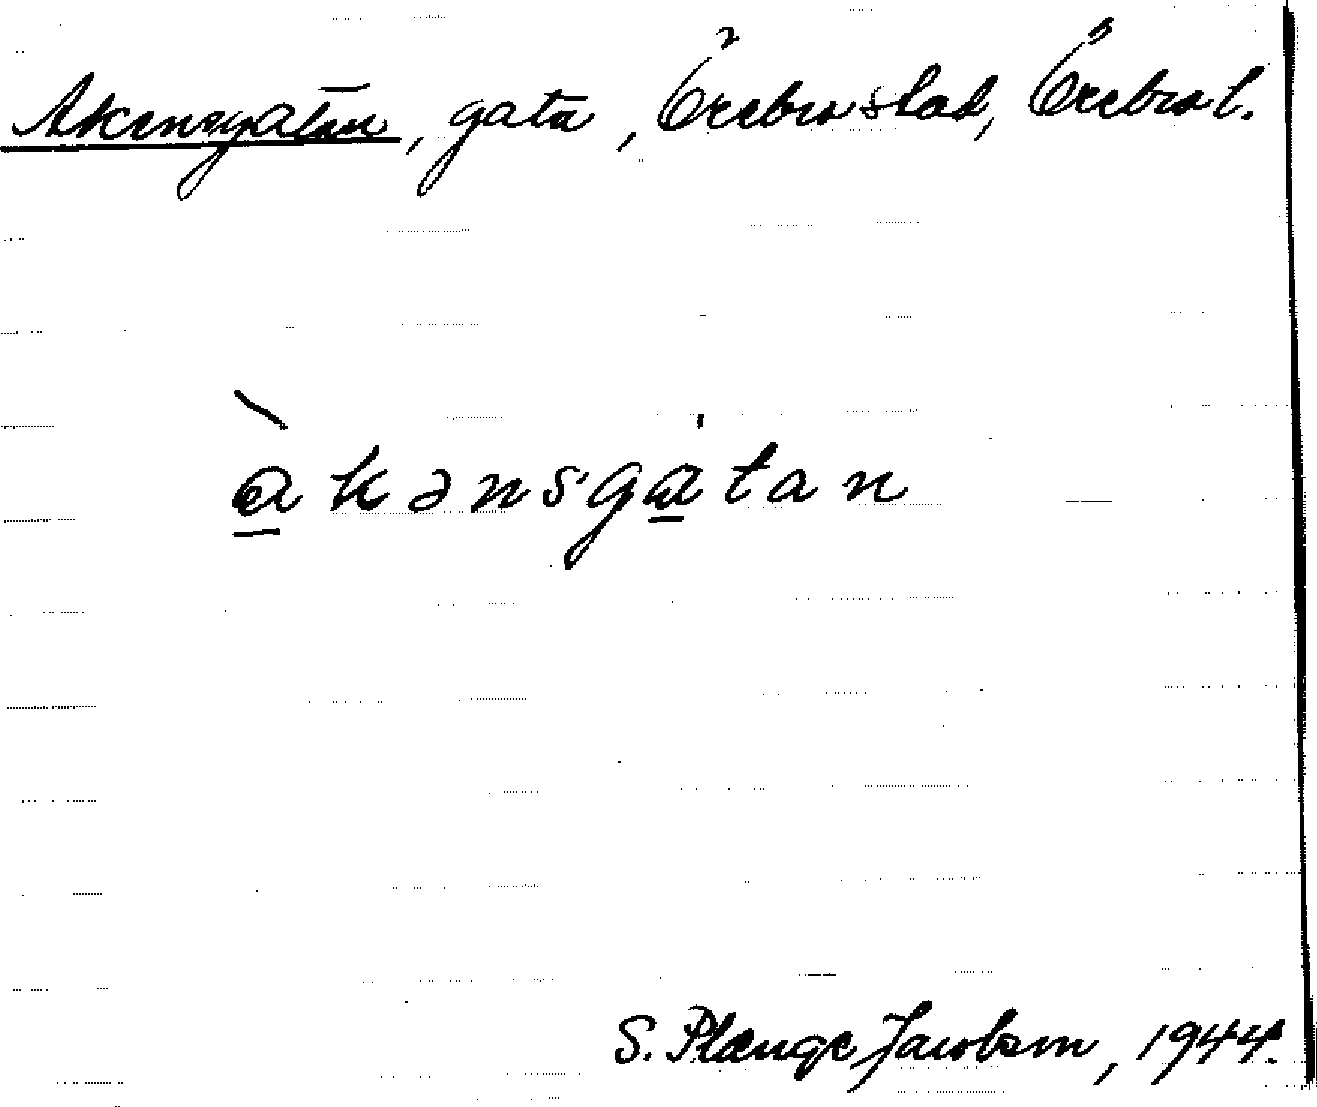 Akensgatan, gata, Örebro stad, Örebro l.
àkənsga̱tan
S. Plænge Jacobson, 1944.